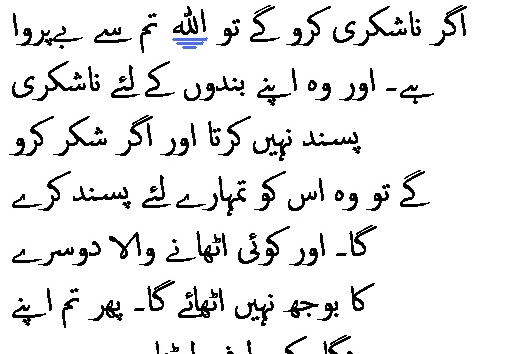 اگر ناشکری کرو گے تو الله تم سے بےپروا
ہے۔ اور وہ اپنے بندوں کے لئے ناشکری
پسند نہیں کرتا اور اگر شکر کرو
گے تو وہ اس کو تمہارے لئے پسند کرے
گا۔ اور کوئی اٹھانے والا دوسرے
کا بوجھ نہیں اٹھائے گا۔ پھر تم اپنے